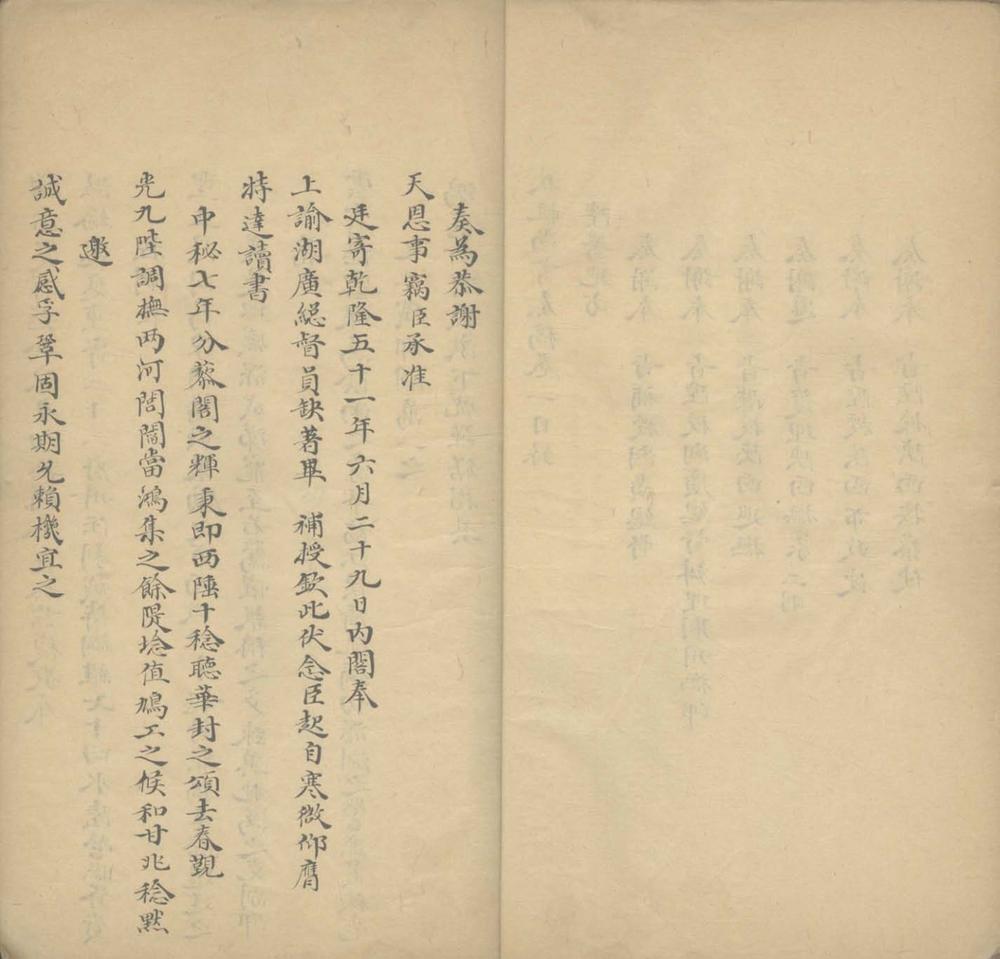 奏為恭謝
天恩事竊臣承准
廷寄乾隆五十一年六月二十九日內閣奉
上諭湖廣総督員缺著畢　補授欽此伏念臣起自寒微仰膺
特達讀書
中秘七年分藜閣之輝秉卽西陲十稔聽華封之頌去春覲
光九陛調撫两河閭閻當鴻集之餘隄埝值鳩工之候和甘兆稔黙
邀
誠意之感孚鞏固永期允賴機宜之